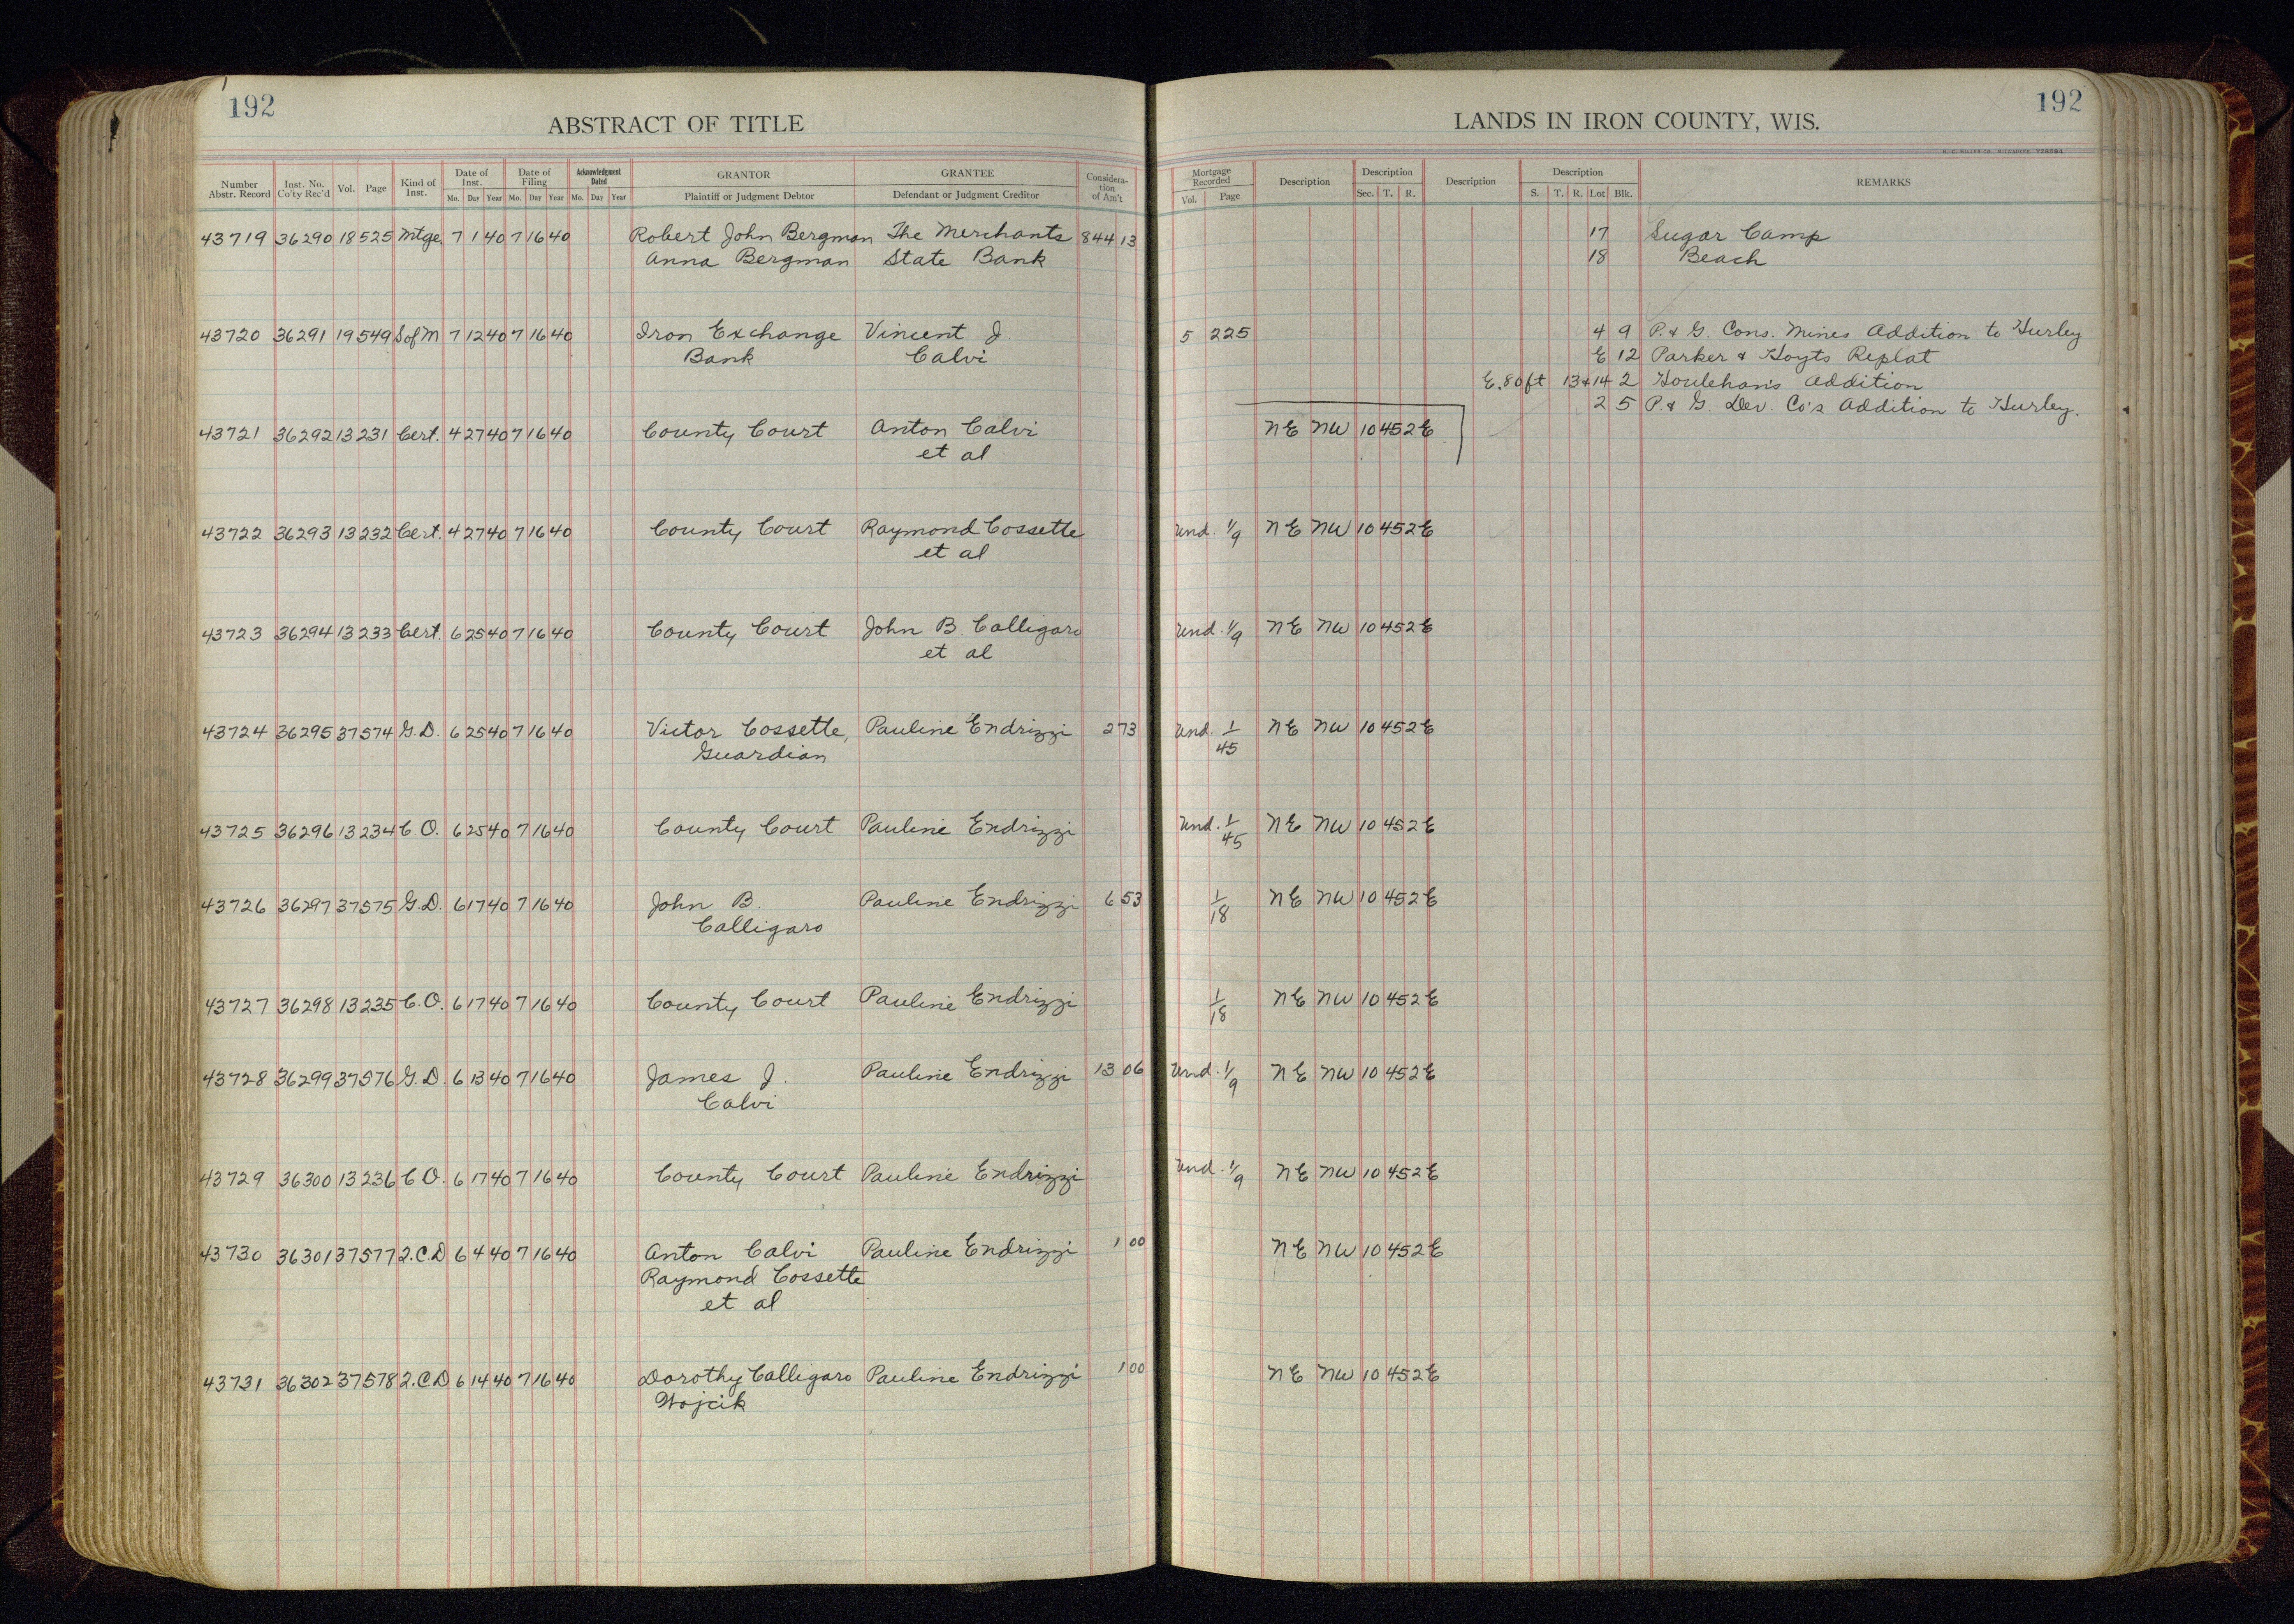 192
ABSTRACT OF TITLE
LANDS IN IRON COUNTY, WIS.
192
Number Abstr. Record Inst. No. Co'ty Rec'd Vol. Page Kind of Inst. Date of Inst. Mo. Day Year Date of Filing Mo. Day Year Acknowledgment Dated Mo. Day Year GRANTOR Plaintiff or Judgment Debtor GRANTEE Defendant or Judgment Creditor Considera-tion of Am't Mortgage Recorded Vol. Page Description Description Sec. T. R. Description Description S. T. R. Lot Blk. REMARKS
43719 36290 18 525 Mtge. 7 1 40 7 16 40 Robert John Bergman The Merchants 844 13 17 Sugar Camp
Anna Bergman State Bank 18 Beach
43720 36291 19 549 S of M 7 12 40 7 16 40 Iron Exchange Vincent J. 5 225 4 9 P. & G. Cons. Mines Addition to Hurley
Bank Calvi E 12 Parker & Hoyts Replat
E. 80 ft 13+14 2 Houlehan's Addition
2 5 P. & G. Dev. Co's Addition to Hurley.
43721 36292 13 231 Cert. 4 27 40 7 16 40 County Court Anton Calvi NE NW 10 45 2E
et al
43722 36293 13 232 Cert. 4 27 40 7 16 40 County Court Raymond Cossette Und. 1/9 NE NW 10 45 2E
et al
43723 36294 13 233 Cert. 6 25 40 7 16 40 County Court John B. Calligaro Und. 1/9 NE NW 10 45 2E
et al
43724 36295 37 574 G.D. 6 25 40 7 16 40 Victor Cossette, Pauline Endrizzi 2 73 Und. 1/45 NE NW 10 45 2E
Guardian
43725 36296 13 234 C.O. 6 25 40 7 16 40 County Court Pauline Endrizzi Und. 1/45 NE NW 10 45 2E
43726 36297 37 575 G.D. 6 17 40 7 16 40 John B. Pauline Endrizzi 6 53 1/18 NE NW 10 45 2E
Calligaro
43727 36298 13 235 C.O. 6 17 40 7 16 40 County Court Pauline Endrizzi 1/18 NE NW 10 45 2E
43728 36299 37 576 G.D. 6 13 40 7 16 40 James J. Pauline Endrizzi 13 06 Und. 1/9 NE NW 10 45 2E
Calvi
43729 36300 13 236 C.O. 6 17 40 7 16 40 County Court Pauline Endrizzi Und. 1/9 NE NW 10 45 2E
43730 36301 37 577 2.C.D 6 4 40 7 16 40 Anton Calvi Pauline Endrizzi 1 00 NE NW 10 45 2E
Raymond Cossette
et al
43731 36302 37 578 2.C.D 6 14 40 7 16 40 Dorothy Calligaro Pauline Endrizzi 1 00 NE NW 10 45 2E
Wojcik